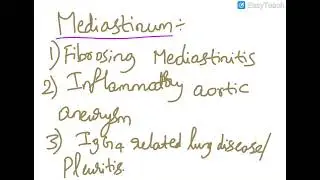 EasyTeach
Mediastinum :-
1) Fibrosing Mediastinitis
2) Inflammatory aortic
aneurysm
3) IgG4 related lung disease/
Pleuritis.